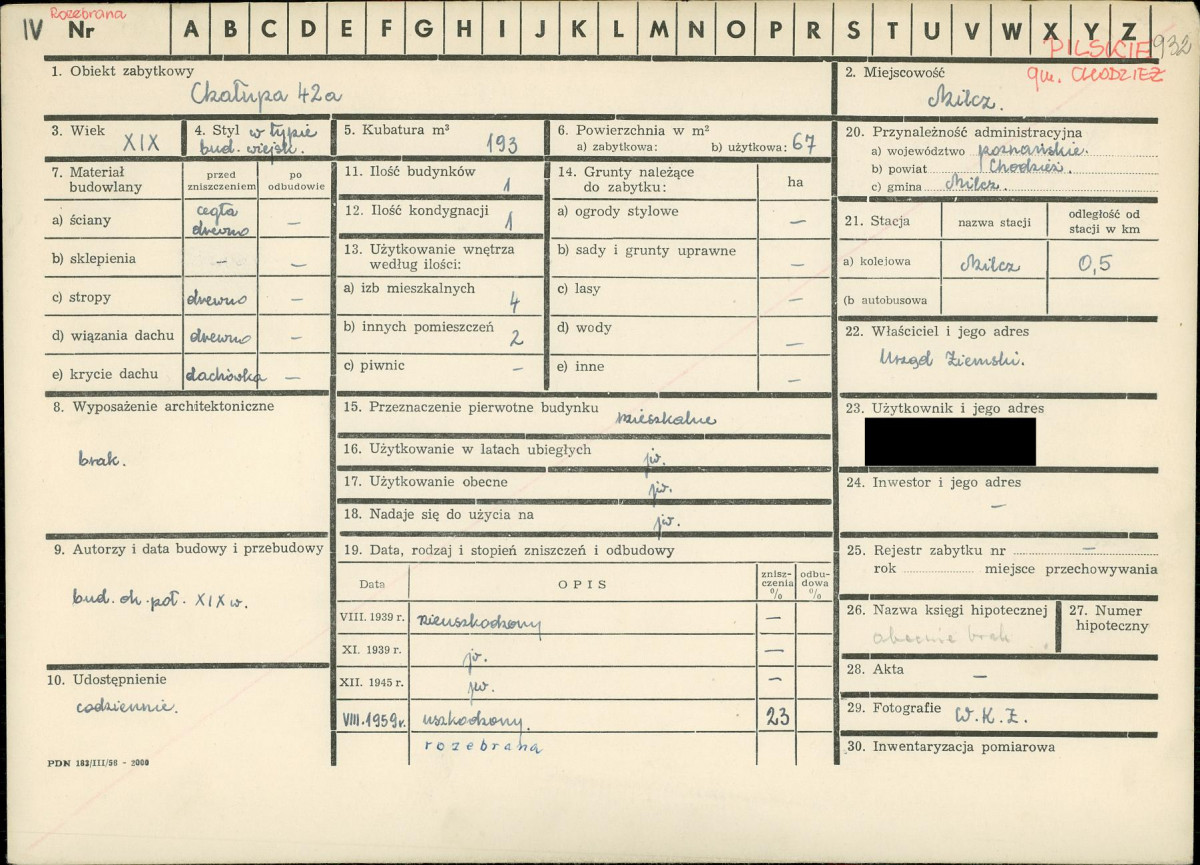 IV Rozebrana
Nr A B C D E F G H I J K L M N O P R S T U V W X Y Z
PILSKIE 932
gm. CHODZIEŻ
1. Obiekt zabytkowy
Chałupa 42a
2. Miejscowość
Milcz.
3. Wiek
XIX
4. Styl w typie
bud. wiejsk.
5. Kubatura m³
193
6. Powierzchnia w m²
a) zabytkowa: b) użytkowa: 67
20. Przynależność administracyjna
a) województwo poznańskie.
b) powiat Chodzież.
c) gmina Milcz.
7. Materiał
budowlany
przed
zniszczeniem
po
odbudowie
a) ściany
cegła
drewno
—
b) sklepienia — —
c) stropy drewno —
d) wiązania dachu drewno —
e) krycie dachu dachówka —
11. Ilość budynków
1
12. Ilość kondygnacji
1
13. Użytkowanie wnętrza
według ilości:
a) izb mieszkalnych
4
b) innych pomieszczeń
2
c) piwnic —
14. Grunty należące
do zabytku:
ha
a) ogrody stylowe —
b) sady i grunty uprawne —
c) lasy —
d) wody —
e) inne —
21. Stacja
nazwa stacji
odległość od
stacji w km
a) kolejowa Milcz 0,5
(b autobusowa
22. Właściciel i jego adres
Urząd Ziemski.
8. Wyposażenie architektoniczne
brak.
15. Przeznaczenie pierwotne budynku mieszkalne
16. Użytkowanie w latach ubiegłych
jw.
17. Użytkowanie obecne
jw.
18. Nadaje się do użycia na
jw.
23. Użytkownik i jego adres
24. Inwestor i jego adres
—
9. Autorzy i data budowy i przebudowy
bud. ok. poł. XIX w.
19. Data, rodzaj i stopień zniszczeń i odbudowy
Data
OPIS
znisz-
czenia
%
odbu-
dowa
%
VIII. 1939 r. nieuszkodzony —
XI. 1939 r. jw. —
XII. 1945 r. jw. —
VIII. 1959 r. uszkodzony. 23
rozebrana
25. Rejestr zabytku nr —
rok miejsce przechowywania
26. Nazwa księgi hipotecznej
obecnie brak
27. Numer
hipoteczny
28. Akta —
29. Fotografie W.K.Z.
30. Inwentaryzacja pomiarowa
10. Udostępnienie
codziennie.
PDN 183/III/58 - 2000